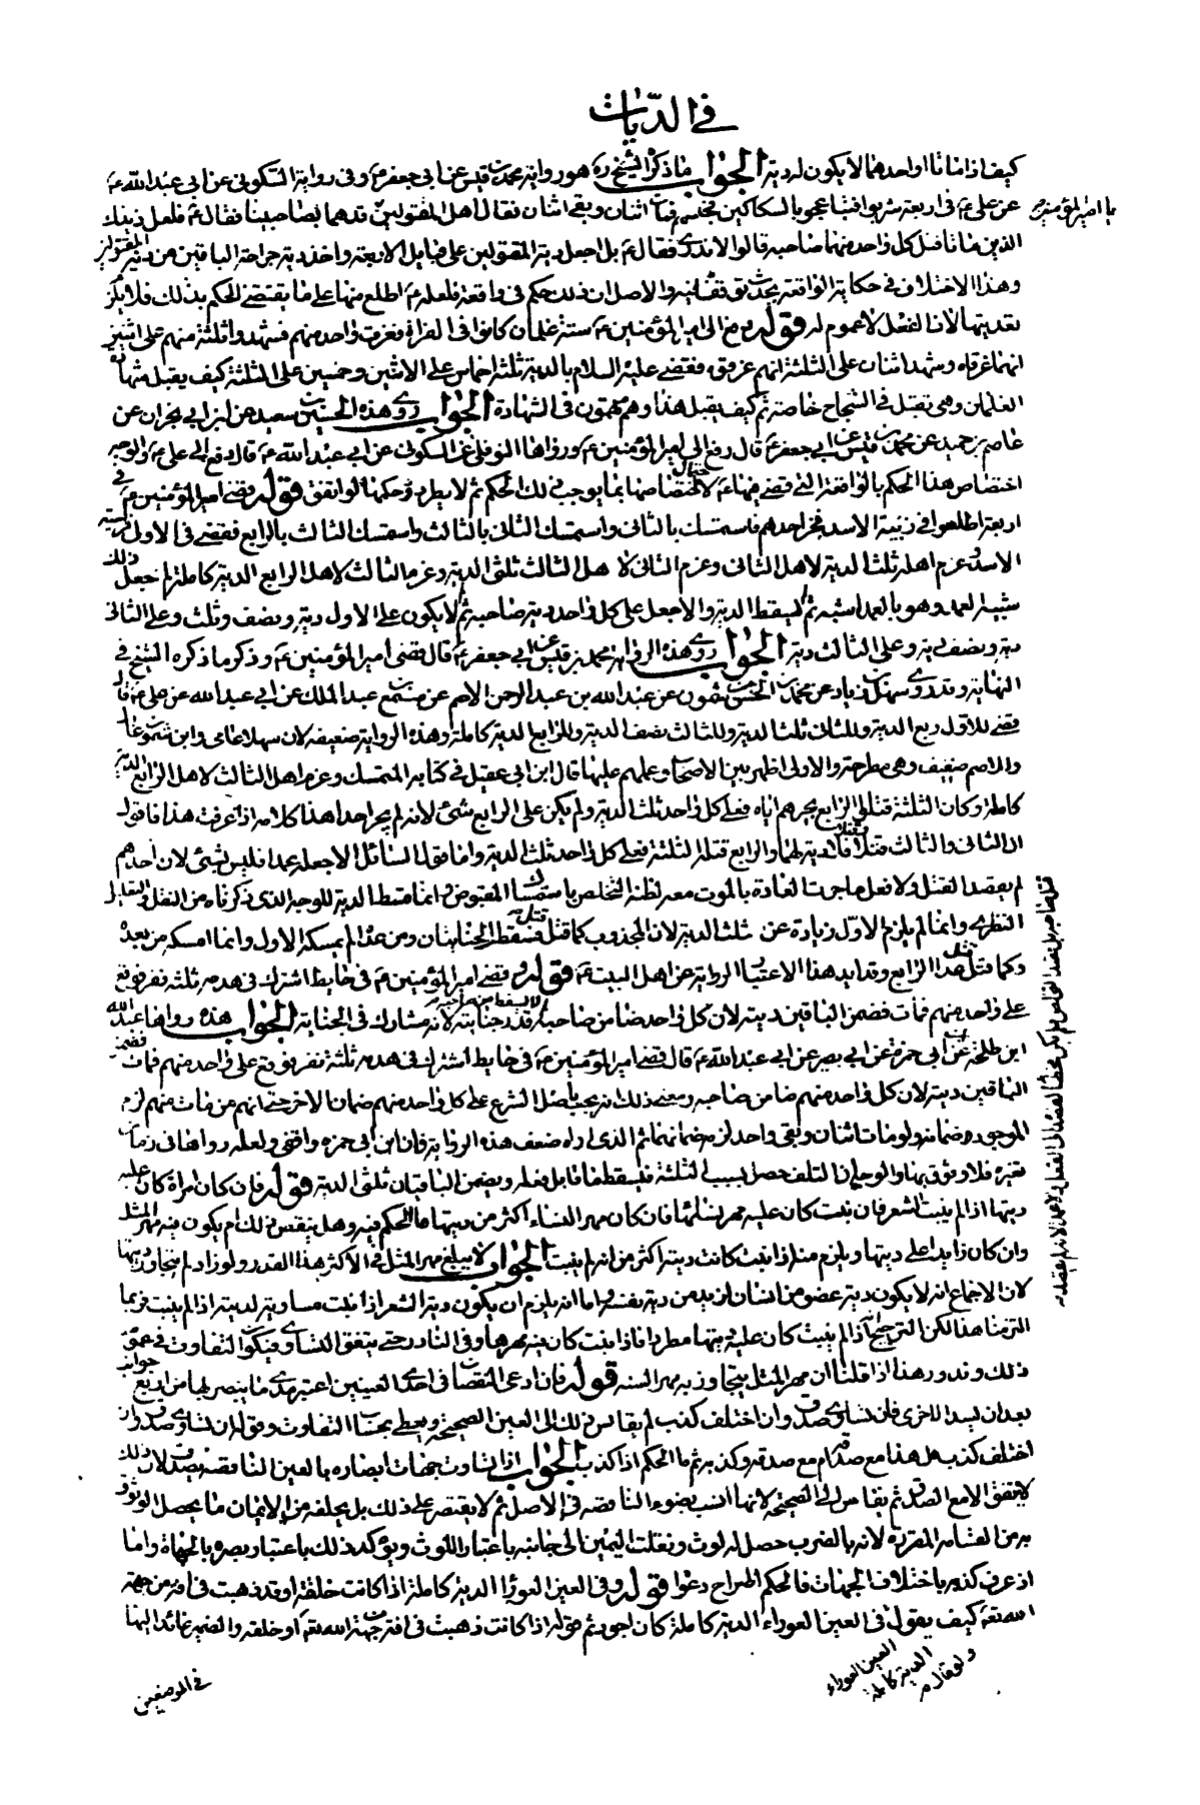 في الديات
كيف اذا ماتا او احدهما لا يكون له دية الجواب ما ذكره الشيخ ره هو رواية محمد بن قيس عن ابي جعفر ع وفي رواية السكوني عن ابي عبد الله ع
عن علي ع في اربعة شربوا فتباعجوا بالسكاكين فمات اثنان وبقي اثنان فقال اهل المقتولين قدهما بصاحبينا فقال ع فلعل ذينك
يا امير المؤمنين
الذين ماتا قتل كل واحد منهما صاحبه قالوا لا ندري فقال ع بل اجعل دية المقتولين على قبايل الاربعة واخذ دية جراحة الباقين من دية المقتولين
وهذا الاختلاف في حكاية الواقعة يحدث توقفا فيه والاصل ان ذلك حكم في واقعة فلعله ع اطلع منها على ما يقتضي الحكم بذلك فلا يلزم
تعديتها لان الفعل لا عموم له قوله ورفع الى امير المؤمنين ع ستة غلمان كانوا في الفرات فغرق واحد منهم فشهد ثلثة منهم على اثنين
انهما غرقاه وشهد اثنان على الثلثة انهم غرقوه فقضى عليه السلام بالدية ثلثة اخماس على الاثنين وخمسين على الثلثة كيف يقبل شهادة
الغلمان وهي تقبل في الشجاج خاصة ثم كيف يقبل هذا وهم متهمون في الشهادة الجواب روى هذه الحسين بن سعيد عن ابن ابي نجران عن
عاصم بن حميد عن محمد بن قيس عن ابي جعفر ع قال رفع الى امير المؤمنين ع ورواها النوفلي عن السكوني عن ابي عبد الله ع قال رفع الى علي ع والوجه
اختصاص هذا الحكم بالواقعة التي قضى فيها ع لاحتمال اختصاصها بما يوجب ذلك الحكم ثم لا يطرد حكمها لو اتفق قوله وقضى امير المؤمنين ع في
اربعة اطلعوا في زبية الاسد فخر احدهم فاستمسك بالثاني واستمسك الثاني بالثالث واستمسك الثالث بالرابع فقضى في الاول فريسة
الاسد وغرم اهله ثلث الدية لاهل الثاني وغرم الثاني لاهل الثالث ثلثي الدية وغرم الثالث لاهل الرابع الدية كاملة لم جعل ذلك
شبيه العمد وهو بالعمد اشبه ثم لم يسقط الدية والا جعل على كل واحد دية صاحبه ثم لا يكون على الاول دية ونصف وثلث وعلى الثاني
دية ونصف دية وعلى الثالث دية الجواب روى هذه الرواية محمد بن قيس عن ابي جعفر ع قال قضى امير المؤمنين ع وذكر ما ذكره الشيخ في
النهاية وقد روى سهل بن زياد عن محمد بن الحسن بن شمون عن عبد الله بن عبد الرحمن الاصم عن مسمع بن عبد الملك عن ابي عبد الله عن علي ع قال
قضى للاول ربع الدية وللثاني ثلث الدية وللثالث نصف الدية وللرابع الدية كاملة وهذه الرواية ضعيفة لان سهلا عامي وابن شمون غال
والاصم ضعيف وهي مطرحة والاولى اظهر بين الاصحاب وعملهم عليها قال ابن ابي عقيل في كتابه المتمسك وغرم اهل الثالث لاهل الرابع الدية
كاملة وكان الثلثة قتلوا الرابع بجرهم اياه فعلى كل واحد ثلث الدية ولم يكن على الرابع شئ لانه لم يجر احدا هذا كلامه اذا عرفت هذا فاقول
ان الثاني والثالث قتلا فلا دية لهما والرابع قتله الثلثة فعلى كل واحد ثلث الدية واما قول السائل الا جعله عمدا فليس بشئ لان احدهم
لم يقصد القتل ولا فعل ما جرت العادة بالموت معه لظنه التخلص باستمساك المقبوض وانما قسط الدية للوجه الذي ذكرناه من النقل والتعليل
النظري وانما لم يلزم الاول زيادة عن ثلث الدية لان المجذوب كما قتل قتل فسقط الجنايتان ومن عداه لم يمسكه الاول وانما امسكه من بعده
وكما قتل هذا الرابع وقد ايد هذا الاعتبار الرواية عن اهل البيت ع قوله وقضى امير المؤمنين ع في حايط اشترك في هدمه ثلثة نفر فوقع
على واحد منهم فمات فضمن الباقين ديته لان كل واحد ضامن صاحبه لم لا يسقط من ديته قدر جنايته لانه مشارك في الجناية الجواب هذه رواها عبد الله
ابن طلحة عن ابن ابي حمزة عن ابي بصير عن ابي عبد الله ع قال قضى امير المؤمنين ع في حايط اشترك في هدمه ثلثة نفر فوقع على واحد منهم فمات فضمن
الباقين ديته لان كل واحد منهم ضامن صاحبه ومعنى ذلك انه يجب باصل الشرع على كل واحد منهم ضمان الاخر حتى انهم من مات منهم لزم
الموجود ضمانه ولو مات اثنان وبقي واحد لزمه ضمانهما ثم الذي اراه ضعف هذه الرواية فان ابن ابي حمزه واقفي ولعله رواها في زمان
تغيره فلا وثوق بها والوجه ان التلف حصل بسبب الثلثة فيسقط ما قابل فعله ويضمن الباقيان ثلثي الدية قوله فان كان امرأة كان عليه
ديتها اذا لم ينبت الشعر فان نبت كان عليه مهر نسائها فان كان مهر النساء اكثر من ديتها ما الحكم فيه وهل ينقص ذلك ام يكون فيه مهر المثل
وان كان زايدا على ديتها ويلزم منه اذا نبت كانت ديته اكثر من انه لم ينبت الجواب لا يبلغ مهر المثل في الاكثر هذا القدر ولو زاد لم يتجاوز ديتها
لان الاجماع انه لا يكون دية عضو من انسان ازيد من دية نفسه واما انه يلزم ان يكون دية الشعر اذا نبت مساوية لديته اذا لم ينبت فربما
التزمنا هذا لكن الترجيح اذا لم ينبت كان عليه ديتها مطردا فاذا نبت كان فيه مهرها وفي النادر حتى يتفق التساوي فيكون التفاوت في عموم
ذلك وندور هذا اذا قلنا ان مهر المثل يتجاوز به مهر السنة قوله فان ادعى النقصان في احدى العينين اعتبر مدى ما يبصر بها من اربع جوانب
بعد ان يسد الاخرى فان تساوى صدق وان اختلف كذب ثم يقاس ذلك الى العين الصحيحة ويعطى بحساب التفاوت وقوله ان تساوى صدق وان
اختلف كذب هل هذا مع صدقه ام مع صدقه وكذبه ثم ما الحكم اذا كذب الجواب اذا تساوت جهات ابصاره بالعين الناقصة يصدق لان ذلك
لا يتفق الا مع الصدق ثم يقاس الى الصحيحة لانها انسب بضوء الناقصة في الاصل ثم لا يقتصر على ذلك بل يحلفه من الايمان ما يحصل الوثوق
به من القسامة المقررة لانه بالضرب حصل له لوث ونقلت اليمين الى جانبه باعتبار اللوث ويؤكد ذلك باعتبار بصره بالجهات واما
اذ عرف كذبه باختلاف الجهات فالحكم اطراح دعواه قوله وفي العين العوراء الدية كاملة اذا كانت خلقة او قد ذهبت في افة من جهة
الله تعالى كيف يقول في العين العوراء الدية كاملة كان اجود ثم قوله اذا كانت ذهبت في افة من جهة الله تعالى او خلقه والضمير عائد اليها
ولو قال م
الدية كاملة
العين العوراء
في الموضعين